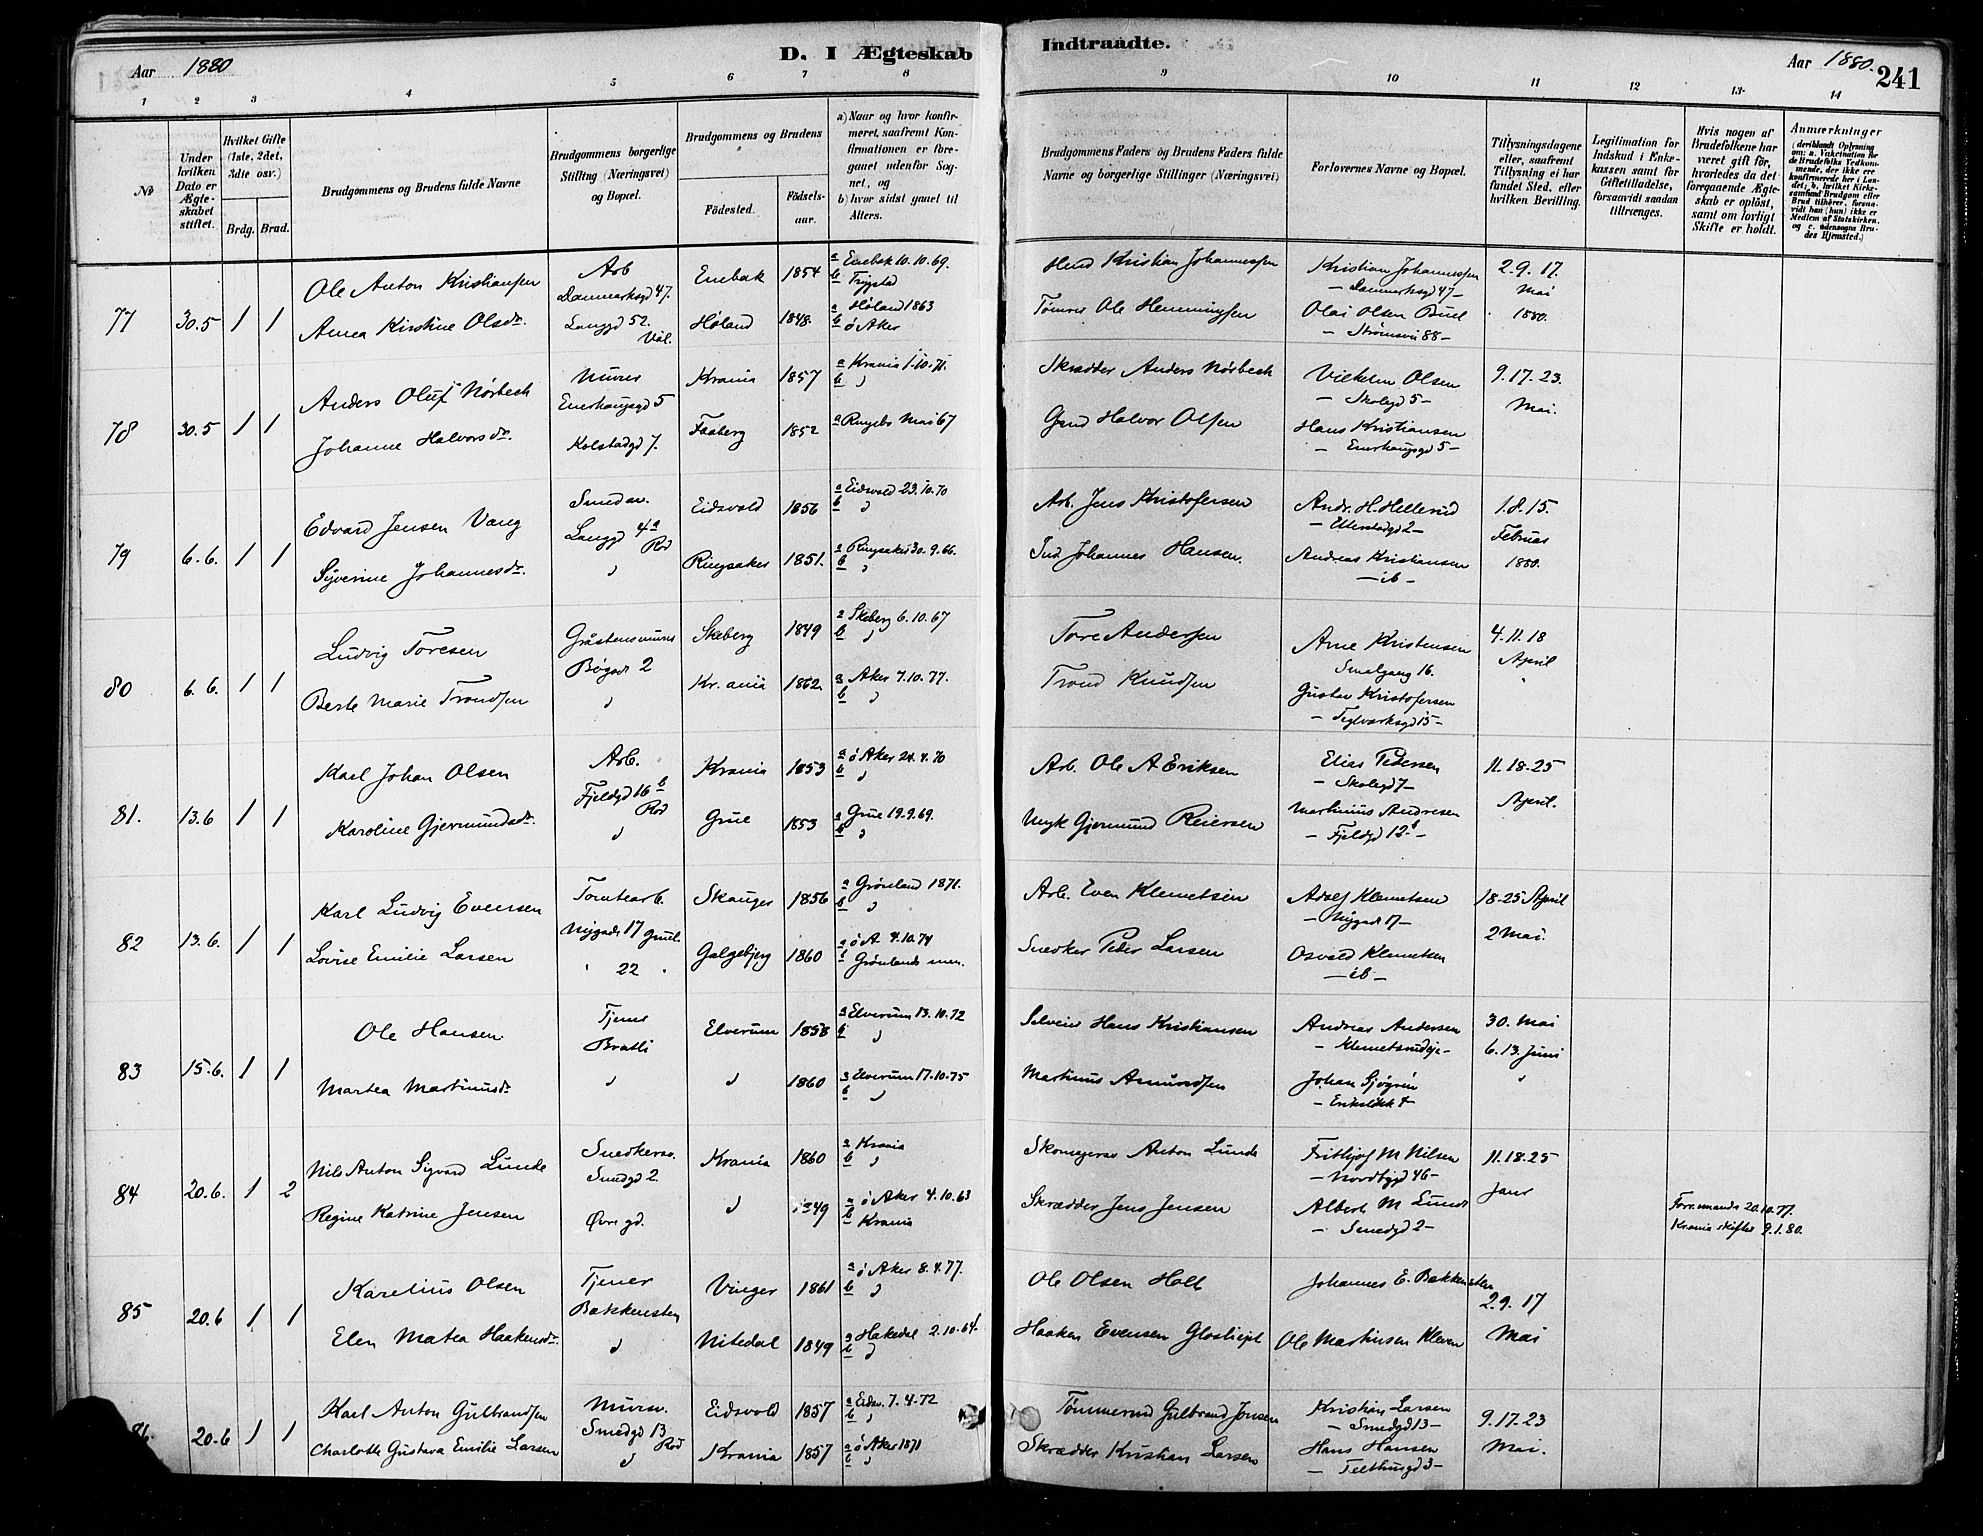 Aar 1880
D. I Ægteskab
Indtraadte.
Aar 1880.
241
1 2 3 4 5 6 7 8 9 10 11 12 13 14
No
Under hvilken Dato er Ægteskabet stiftet.
Hvilket Gifte (1ste, 2det, 3dte osv.)
Brdg. Brud.
Brudgommens og Brudens fulde Navne
Brudgommens borgerlige Stilling (Næringsvei) og Bopæl.
Brudgommens og Brudens
Fødested. Fødselsaar.
a) Naar og hvor konfirmeret, saafremt Konfirmationen er foregaaet udenfor Sognet, og
b) hvor sidst gaaet til Alters.
Brudgommens Faders og Brudens Faders fulde Navne og borgerlige Stillinger (Næringsvei)
Forlovernes Navne og Bopæl.
Tillysningsdagene eller, saafremt Tillysning ei har fundet Sted, efter hvilken Bevilling.
Legitimation for Indskud i Enkekassen samt for Giftetilladelse, forsaavidt saadan tiltrænges.
Hvis nogen af Brudefolkene har været gift før, hvorledes da det foregaaende Ægteskab er opløst, samt om lovligt Skifte er holdt.
Anmærkninger (deriblandt Oplysning om: a. Vakcination for de Brudefolks Vedkommende, der ikke ere konfirmerede her i Landet; b. hvilket Kirkesamfund Brudgom eller Brud tilhører, forsaavidt han (hun) ikke er Medlem af Statskirken, og c. udensogns Brudes Hjemsted.)
Ole Anton Kristiansen Arb Danmarksgd 47. Enebak 1854 a Enebak 10.10.69. b Trygstad Kristian Johannessen Kristian Johannessen – Danmarksgd 47 – 2.9.17. Mai
77 30.5 1 1 Anna Kirstine Olsdr. Langgd 52. Vål. Høland 1848. a Høland 1863 b ö Aker Tømrer Ole Henningsen Olai Olsen – Strømsvei 88 – 1880.
Anders Oluf Nørbech Murer Enerhaugsgd 5 Krania 1857 a Krania 1.10.71. b " Skrædder Anders Nørbech Vilhelm Olsen – Skolegd 5 – 9.17.23. Mai.
78 30.5 1 1 Johanne Halvorsdr. Kolstadgd 7. Faaberg 1852 a Ringebo Mai 67 Gmd Halvor Olsen Hans Kristiansen – Enerhaugsgd 5 –
Edvard Jensen Vang Smedsv. Langgd 4a Rød Eidsvold 1856 a Eidsvold 23.10.70 b " Arb. Jens Kristofersen Andr. H. Hellerud – Etterstadgd 2 – 1.8.15. Februar
79 6.6. 1 1 Syverine Johannesdr. " Ringsaker 1851. a Ringsaker 30.9.66. b " Ind Johannes Hansen. Andreas Kristiansen – ib – 1880.
Ludvig Toresen Gråstensmurer Bøgadr 2 Skeberg 1849 a Skeberg 6.10.67 b " Tore Andersen Arne Kristensen Smalgang 16. 4.11.18 April
80 6.6. 1 1 Berte Marie Trondsen " Kr.ania 1862. a Aker 7.10.77. b " Trond Knudsen Gustav Kristofersen – Teglverksgd 15 –
Karl Johan Olsen Arb. Fjeldgd 16b Rød Krania 1853 a ö Aker 24.4.70 b " Arb. Ole A Eriksen Elias Pedersen – Skolegd 7 – 11.18.25 April.
81. 13.6 1 1 Karoline Gjermundsdr. " Grue 1853 a Grue 19.9.69. b " Gjermund Reiersen Martinus Andresen – Fjeldgd 12 –
Karl Ludvig Evensen Tomtearb. Nygade 17 Skauger 1856 a Grønland 1871. b " Arb. Even Klemetsen Adolf Klemetsen – Nygade 17 – 18.25 April 2 Mai.
82 13.6. 1 1 Lovise Emilie Larsen 22 Galgebjerg 1860 a ö A 4.10.74 b Grønlands men. Snedker Peder Larsen Osvald Klemetsen – ib –
Ole Hansen Tjener Bratli Elverum 1858 a Elverum 13.10.72 b " Selveier Hans Kristiansen Andreas Andersen 30. Mai 6.13. Juni
83 15.6. 1 1 Martea Martinusdr. " " 1860 a Elverum 17.10.75 b " Martinus Amundsen Johan Sjøgren
Nils Anton Sigvard Lunde Snedkersv. Smedgd 2. Krania 1860 a Krania b " Skomagersv Anton Lunde Fritjof M Nilsen – Nordbygd 46 – 11.18.25
84 20.6. 1 2 Regine Katrine Jensen Øvregd. " 1849 a ö Aker 4.10.63 b Krania Skrædder Jens Jensen Albert M Lunde – Smedgd 2 – Janr Formands 20.10.77. Krania skifter 9.1.80.
Karelius Olsen Tjener Bakkensten Vinger 1861 a ö Aker 8.4.77. b " Ole Olsen Holt Johannes E. Bakkensten 2.9.17
85 20.6 1 1 Elen Matea Haakensdr. " Nitedal 1849 a Hakedal 2.10.64. b " Haaken Evensen Ole Martinsen Kleven Mai
Karl Anton Gulbrandsen Murersv. Smedgd 13 Rød Eidsvold 1857 a Eidsv. 7.4.72 b " Gulbrand Jensen Kristian Larsen – Smedgd 13 – 9.17.23
86. 20.6 1 1 Charlotte Gustava Emilie Larsen " Krania 1857 a ö Aker 1871 b " Skrædder Kristian Larsen Hans Hansen – Telthusgd 3 – Mai.